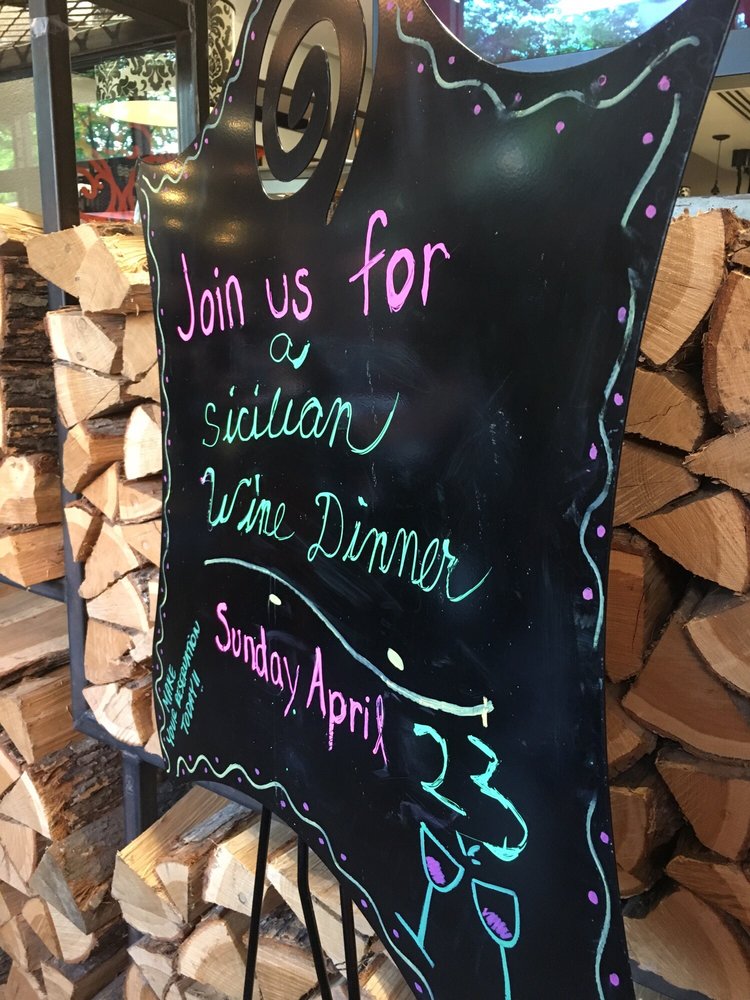 Join us for
a
Sicilian
Wine Dinner
Sunday April
23
MAKE
YOUR RESERVATION
TODAY!!